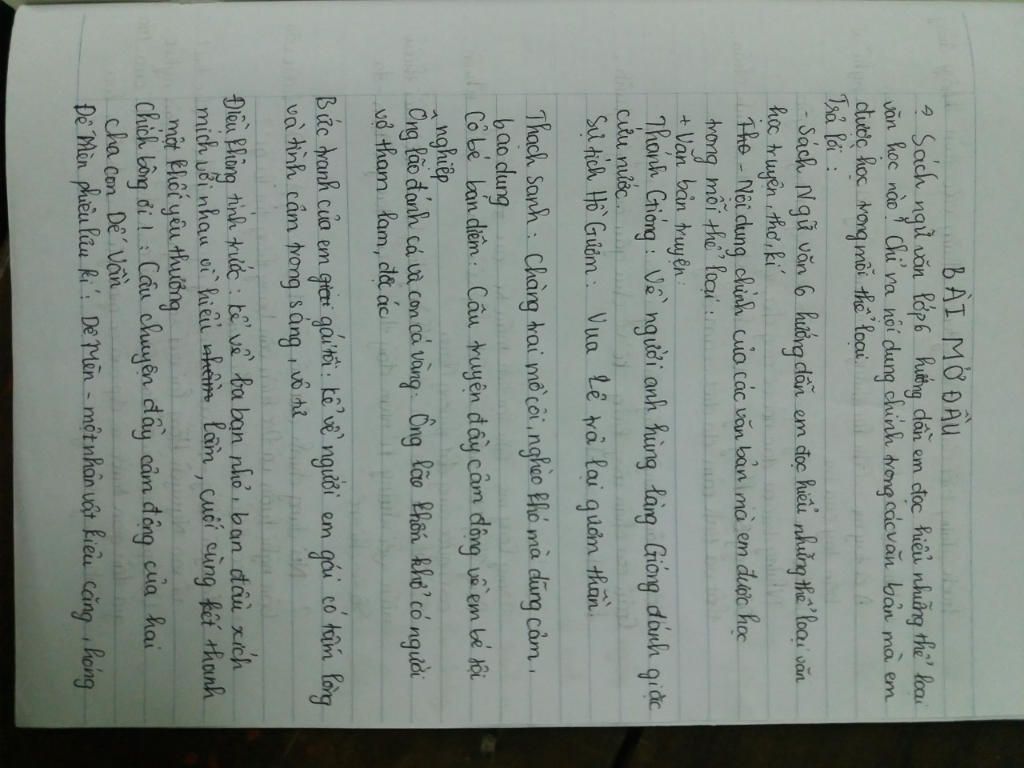 BÀI MỞ ĐẦU
→ Sách ngữ văn lớp 6 hướng dẫn em đọc hiểu những thể loại
văn học nào? Chỉ ra nội dung chính trong các văn bản mà em
được học trong mỗi thể loại
Trả lời:
- Sách Ngữ văn 6 hướng dẫn em đọc hiểu những thể loại văn
học truyện, thơ, kí
Thơ - Nội dung chính của các văn bản mà em được học
trong mỗi thể loại:
+ Văn bản truyện:
Thánh Gióng: Về người anh hùng làng Gióng đánh giặc
cứu nước
Sự tích Hồ Gươm: Vua Lê trả lại gươm thần
Thạch Sanh: Chàng trai mồ côi, nghèo khó mà dũng cảm,
bao dung
Cô bé bán diêm: Câu truyện đầy cảm động về em bé tội
nghiệp
Ông lão đánh cá và con cá vàng: Ông lão khốn khổ có người
vở tham lam, độc ác
Bức tranh của em gái tôi: Kể về người em gái có tấm lòng
và tình cảm trong sáng, vô tư
Điều không tính trước: Kể về ba bạn nhỏ, ban đầu xích
mích với nhau vì hiểu lầm, cuối cùng kết thành
một khối yêu thương
Chích bông ơi!: Câu chuyện đầy cảm động của hai
cha con Dế Vần
Dế Mèn phiêu lưu kí: Dế Mèn - một nhân vật kiêu căng, hống